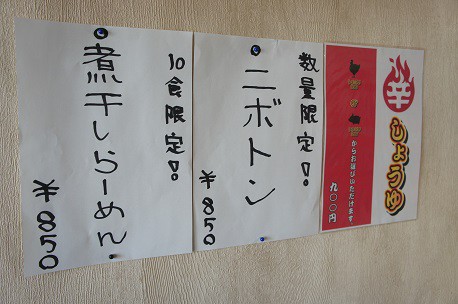 辛
しょうゆ
からお選びいただけます。
九〇〇円
数量限定!
ニボトン
¥850
10食限定!
煮干しらーめん
¥850